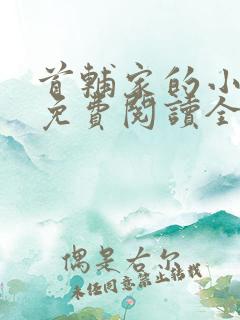 首輔家的小
免費閱讀全
偶是右尔
未经同意禁止转载